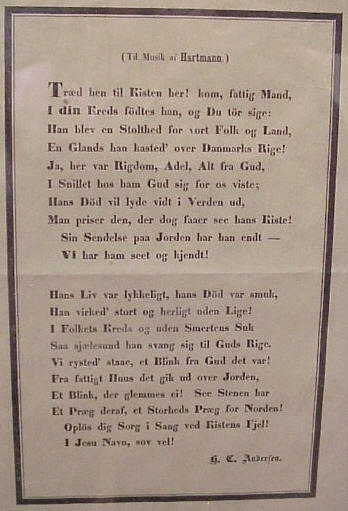 (Til Musik af Hartmann.)
Træd hen til Kisten her! kom, fattig Mand,
I din Kreds födtes han, og Du tör sige:
Han blev en Stolthed for vort Folk og Land,
En Glands han kasted' over Danmarks Rige!
Ja, her var Rigdom, Adel, Alt fra Gud,
I Snillet hos ham Gud sig for os viste;
Hans Död vil lyde vidt i Verden ud,
Man priser den, der dog faaer see hans Kiste!
Sin Sendelse paa Jorden har han endt —
Vi har ham seet og kjendt!
Hans Liv var lykkeligt, hans Död var smuk,
Han virked' stort og herligt uden Lige!
I Folkets Kreds og uden Smertens Suk
Saa sjælesund han svang sig til Guds Rige.
Vi rysted' staae, et Blink fra Gud det var!
Fra fattigt Huus det gik ud over Jorden,
Et Blink, der glemmes ei! See Stenen har
Et Præg deraf, et Storheds Præg for Norden!
Oplös dig Sorg i Sang ved Kistens Fjel!
I Jesu Navn, sov vel!
H. C. Andersen.